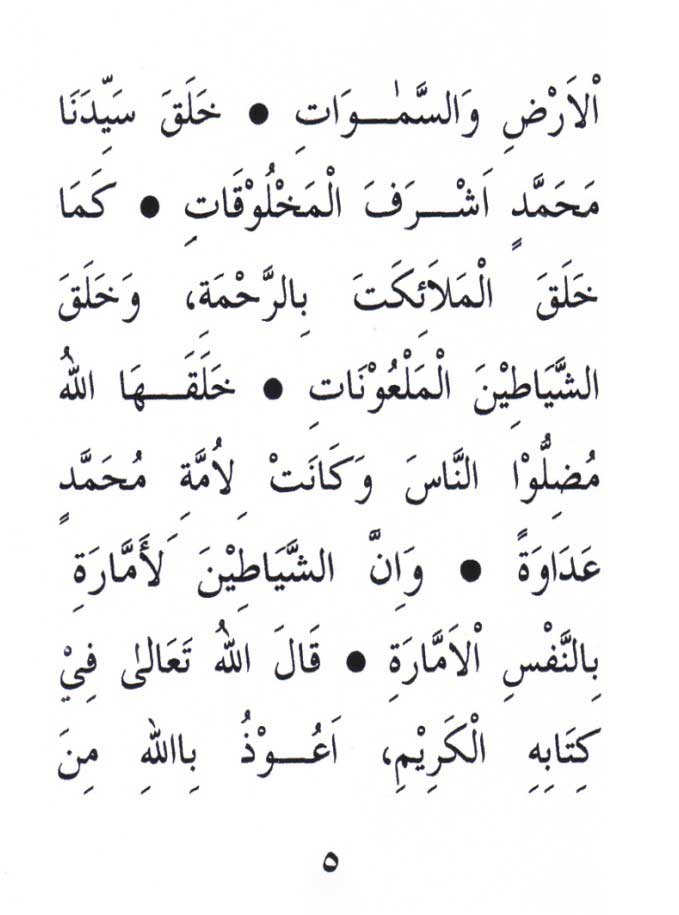 اْلاَرْضِ وَالسَّمٰـــوَاتِ ● خَلَقَ سَيِّدَنَا
مَحَمَّدٍ اَشْـــرَفَ الْمَخْلُوْقَاتِ ● كَمَا
خَلَقَ الْمَلاَئِكَتَ بِالرَّحْمَةِ، وَخَلَقَ
الشَّيَاطِيْنَ الْمَلْعُوْنَاتِ ● خَلَقَـــهَا اللهُ
مُضِلُّوْا النَّاسَ وَكَانَتْ لِاُمَّةِ مُحَمَّدٍ
عَدَاوَةً ● وَاِنَّ الشَّيَاطِيْنَ لَأَمَّارَةِ
بِالنَّفْسِ اْلاَمَّارَةِ ● قَالَ اللهُ تَعَالىٰ فِيْ
كِتَابِهِ الْكَرِيْمِ، اَعُـــوْذُ بِاللهِ مِنَ
٥